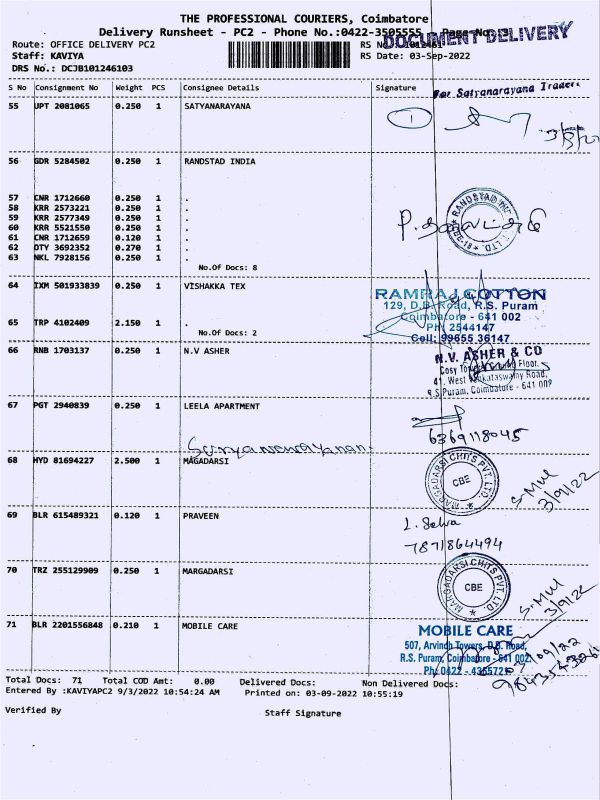 THE PROFESSIONAL COURIERS, Coimbatore
Delivery Runsheet - PC2 - Phone No.:0422-3505555
DOCUMENT DELIVERY
Route: OFFICE DELIVERY PC2
Staff: KAVIYA RS Date: 03-Sep-2022
DRS No.: DCJB101246103
S No Consignment No Weight PCS Consignee Details Signature
For Satyanarayana Traders
55 UPT 2081065 0.250 1 SATYANARAYANA
1
56 GDR 5284502 0.250 1 RANDSTAD INDIA
57 CNR 1712660 0.250 1 .
58 KRR 2573221 0.250 1 .
59 KRR 2577349 0.250 1 .
60 KRR 5521550 0.250 1 .
61 CNR 1712659 0.120 1 .
62 DTY 3692352 0.270 1 .
63 NKL 7928156 0.250 1 .
No.Of Docs: 8
64 IXM 501933839 0.250 1 VISHAKKA TEX
RAMRAJ COTTON
129, D.B. Road, R.S. Puram
Coimbatore - 641 002
Ph: 2544147
Cell: 99655 36147
65 TRP 4102409 2.150 1 .
No.Of Docs: 2
66 RNB 1703137 0.250 1 N.V ASHER
N.V. ASHER & CO
Floor,
41, West Venkataswamy Road,
R.S Puram, Coimbatore - 641 002
67 PGT 2940839 0.250 1 LEELA APARTMENT
6369118045
Suryanarayanan.
68 HYD 81694227 2.500 1 MAGADARSI
MARGADARSI CHITS PVT. LTD.
CBE
3/9/22
69 BLR 615489321 0.120 1 PRAVEEN
L. Selva
7871864494
70 TRZ 255129909 0.250 1 MARGADARSI
MARGADARSI CHITS PVT. LTD.
CBE
3/9/22
71 BLR 2201556848 0.210 1 MOBILE CARE
MOBILE CARE
507, Arvindh Towers, D.B. Road,
R.S. Puram, Coimbatore - 641 002
Total Docs: 71 Total COD Amt: 0.00 Delivered Docs: Non Delivered Docs:
Entered By :KAVIYAPC2 9/3/2022 10:54:24 AM Printed on: 03-09-2022 10:55:19
Verified By Staff Signature